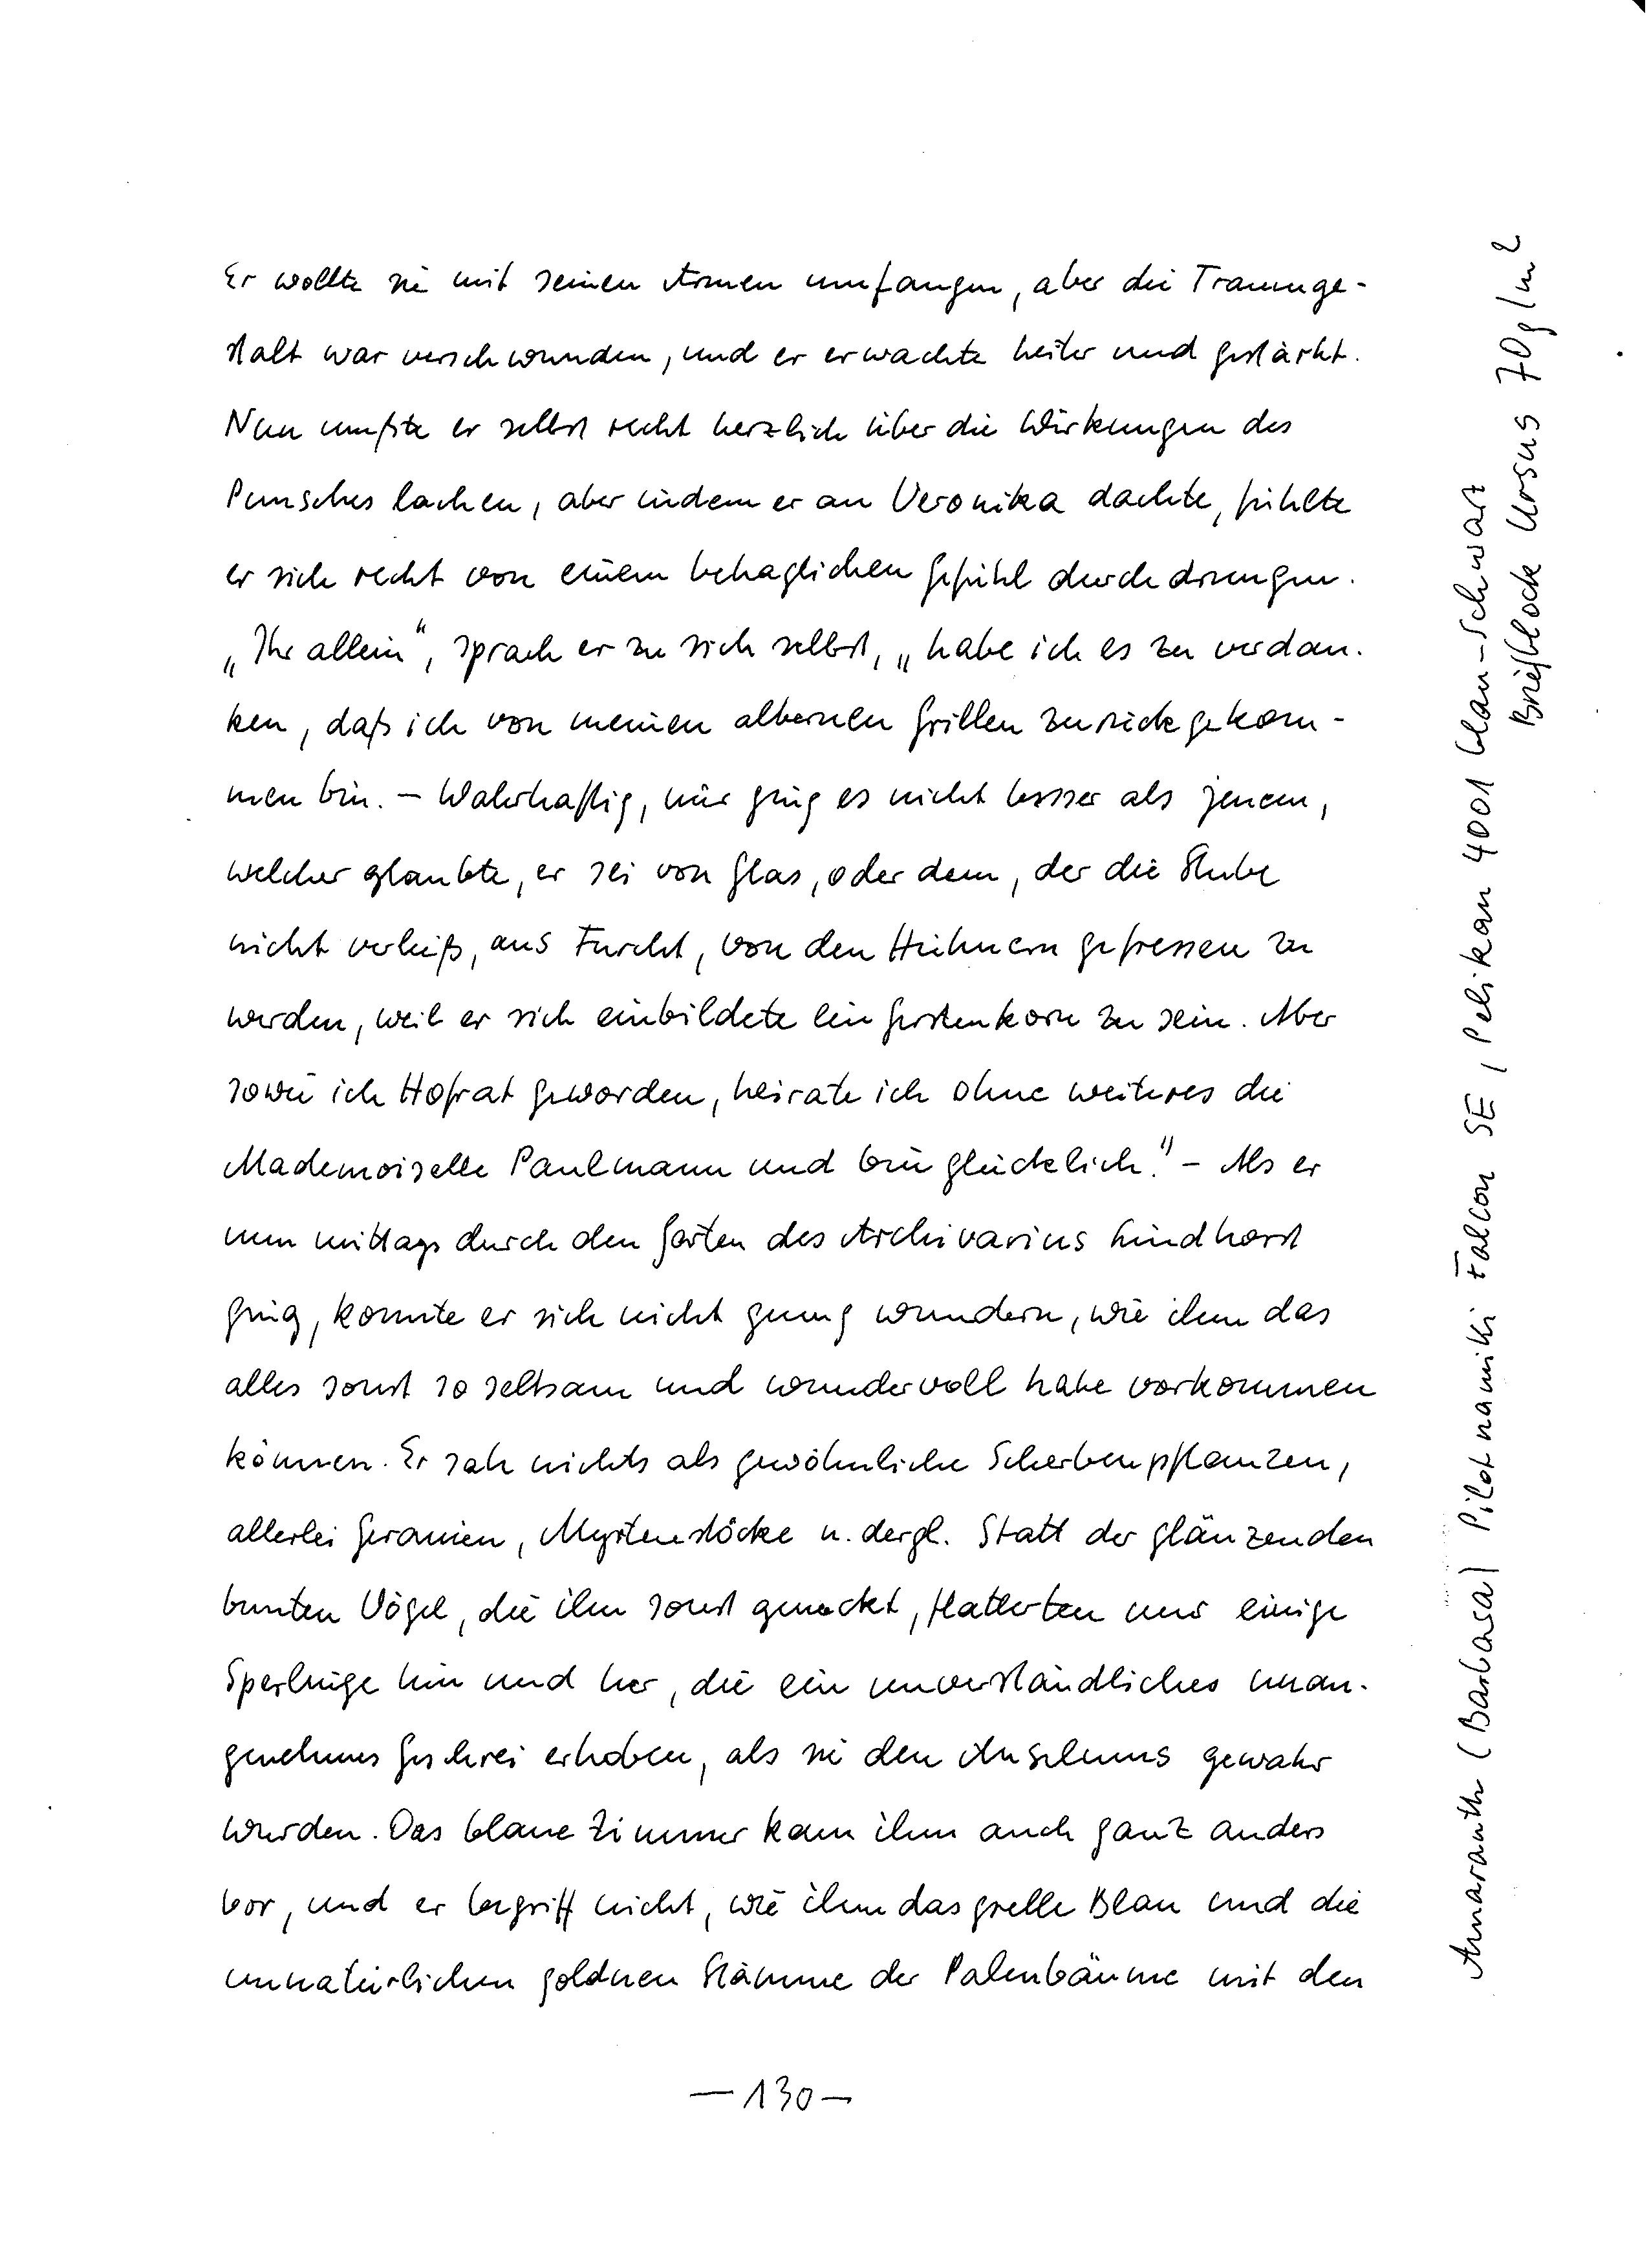 Er wollte sie mit seinen Armen umfangen, aber die Traumge-
stalt war verschwunden, und er erwachte heiter und gestärkt.
Nun mußte er selbst recht herzlich über die Wirkungen des
Punsches lachen, aber indem er an Veronika dachte, fühlte
er sich recht von einem behaglichen Gefühl durchdrungen.
„Ihr allein“, sprach er zu sich selbst, „habe ich es zu verdan-
ken, daß ich von meinen albernen Grillen zurückgekom-
men bin. – Wahrhaftig, mir ging es nicht besser als jenem,
welcher glaubte, er sei von Glas, oder dem, der die Stube
nicht verließ, aus Furcht, von den Hühnern gefressen zu
werden, weil er sich einbildete ein Gerstenkorn zu sein. Aber
sowie ich Hofrat geworden, heirate ich ohne weiteres die
Mademoiselle Paulmann und bin glücklich.“ – Als er
nun mittags durch den Garten des Archivarius Lindhorst
ging, konnte er sich nicht genug wundern, wie ihm das
alles sonst so seltsam und wundervoll habe vorkommen
können. Er sah nichts als gewöhnliche Scherbenpflanzen,
allerlei Geranien, Myrtenstöcke u. dergl. Statt der glänzenden
bunten Vögel, die ihn sonst geneckt, flatterten nur einige
Sperlinge hin und her, die ein unverständliches unan-
genehmes Geschrei erhoben, als sie den Anselmus gewahr
wurden. Das blaue Zimmer kam ihm auch ganz anders
vor, und er begriff nicht, wie ihm das grelle Blau und die
unnatürlichen goldnen Stämme der Palenbäume mit den
– 130 –
Amaranth (Barbasa) Pilot namiki Falcon SE, Pelikan 4001 blau-schwarz
Briefblock Ursus 70g/m2